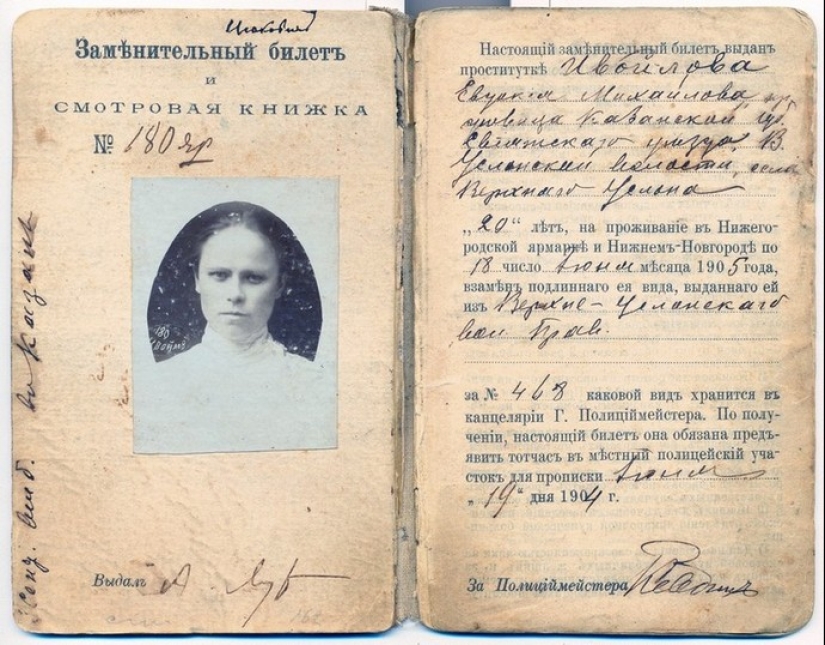 Замѣнительный билетъ
и
СМОТРОВАЯ КНИЖКА
№ 180 яр
въ Казань
Выдалъ
Настоящій замѣнительный билетъ выданъ
проституткѣ Ивойлова
Михайлова
Казанской губ.
уѣзда, В.
Услонской волости, села
Верхняго Услона
„20“ лѣтъ, на проживаніе въ Нижего-
родской ярмаркѣ и Нижнемъ-Новгородѣ по
18 число Іюня мѣсяца 1905 года,
взамѣнъ подлиннаго ея вида, выданнаго ей
изъ Верхне-Услонскаго
вол. Прав.
за № 468 каковой видъ хранится въ
канцеляріи Г. Полиціймейстера. По полу-
ченіи, настоящій билетъ она обязана предъ-
явить тотчасъ въ мѣстный полицейскій уча-
стокъ для прописки Іюня
„19“ дня 1904 г.
За Полиціймейстера